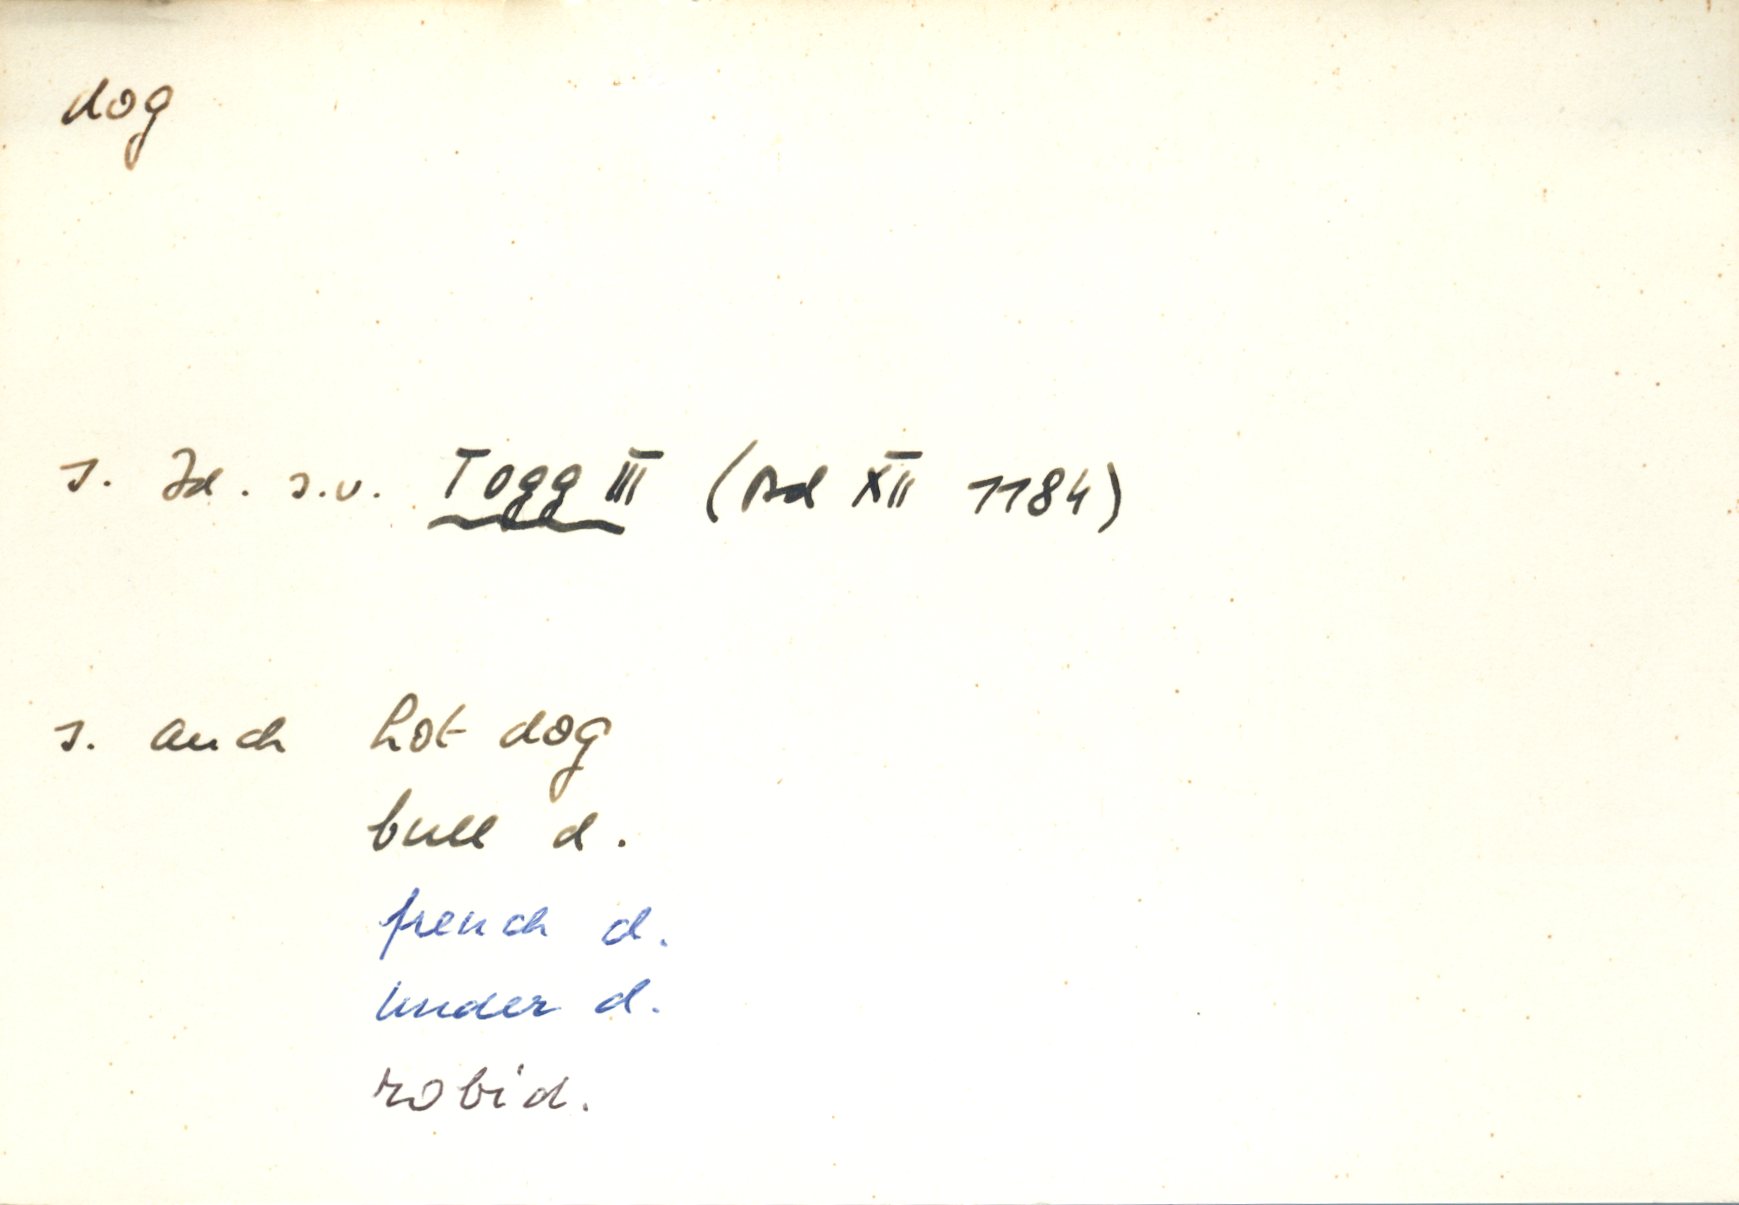 dog
s. Id. s.v. Togg III (Bd XII 1184)
s. auch hot dog
bull d.
french d.
under d.
robid.